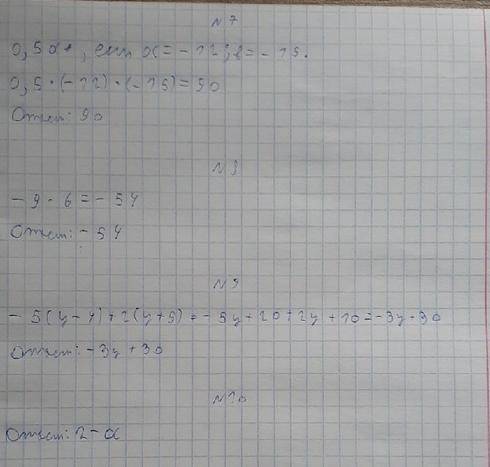 N 7
0,5ав, если а = - 12; в = - 15.
0,5 · (- 12) · (- 15) = 90
Ответ: 90
N 8
- 9 · 6 = - 54
Ответ: - 54
N 9
- 5(y - 4) + 2(y + 5) = - 5y + 20 + 2y + 10 = - 3y + 30
Ответ: - 3y + 30
N 10
Ответ: 2 - а